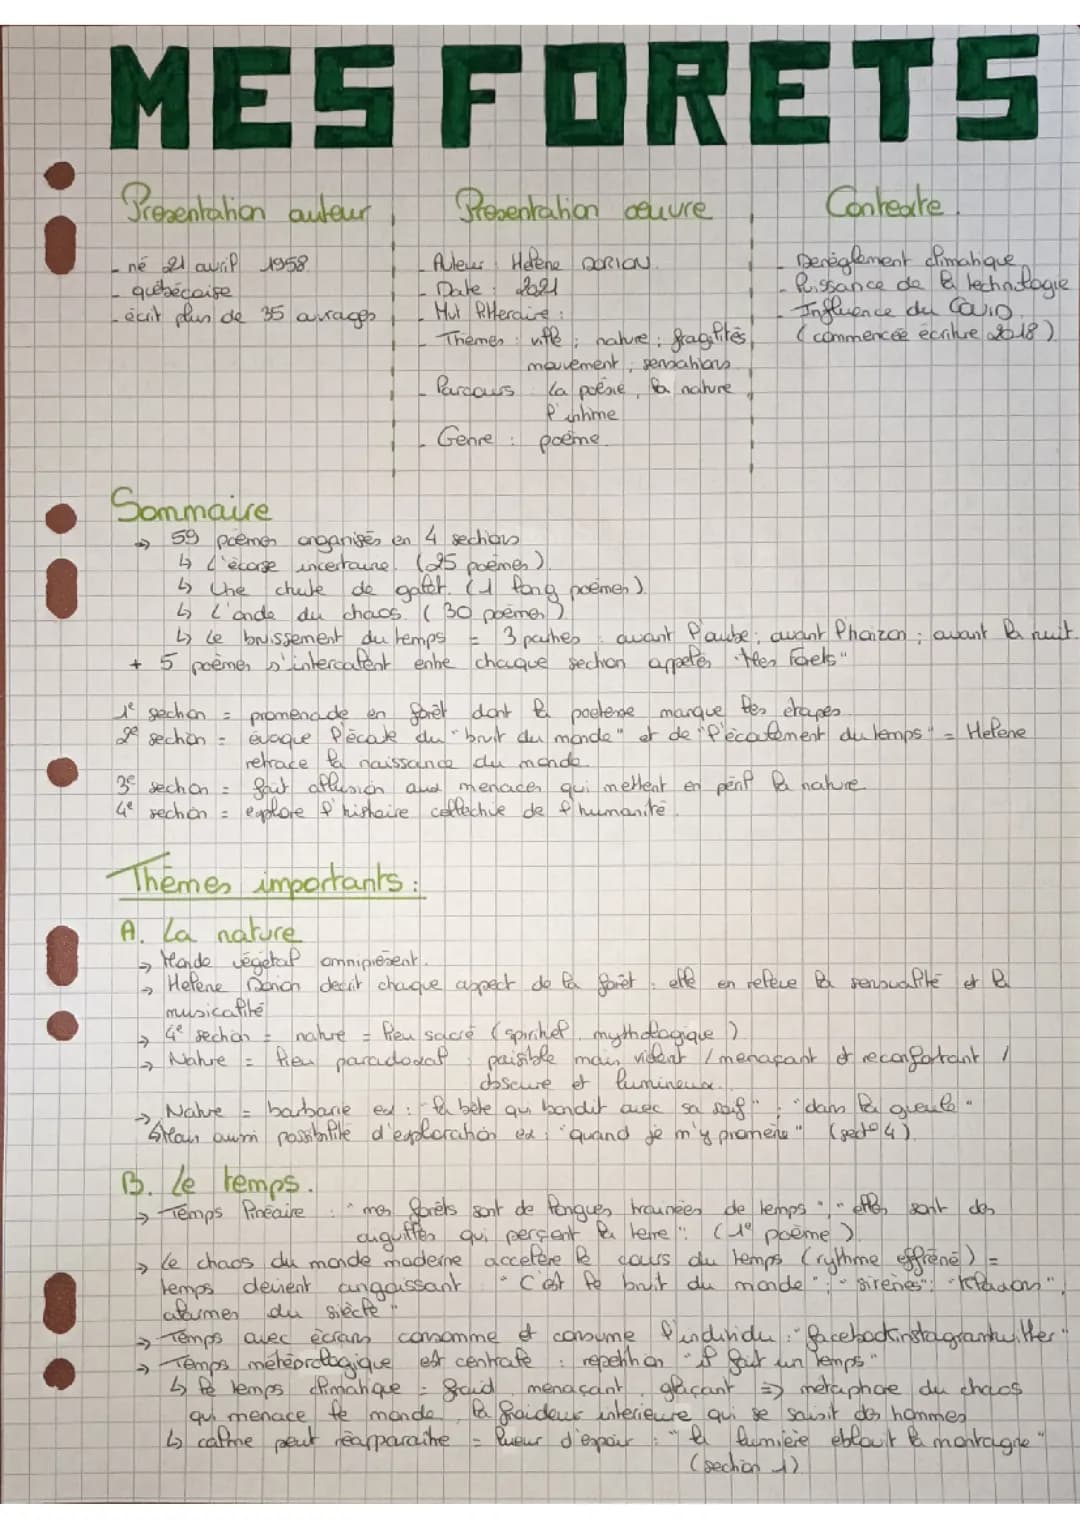 MES FORETS
Presentation auteur
- né 21 avril 1958
- québécoise
- écrit plus de 35 ouvrages
Presentation œuvre
- Auteur : Helène DORION
- Date : 2021
- Mvt littéraire :
- Thèmes : ville ; nature ; fragilités,
mouvement, sensations
- Parcours La poésie, la nature,
l'intime
- Genre : poème
Contexte
- Dérèglement climatique
- Puissance de la technologie
- Influence du COVID
(commencée écriture 2018)
Sommaire
→ 59 poèmes organisés en 4 sections
↳ L'écorse incertaine. (25 poèmes)
↳ Une chute de galet. (1 long poèmes)
↳ L'onde du chaos. (30 poèmes)
↳ Le bruissement du temps = 3 parties : avant l'aube ; avant l'horizon ; avant la nuit.
+ 5 poèmes s'intercalent entre chaque section appelés "Mes Forets"
1e section = promenade en forêt dont la poétesse marque les étapes
2e section = évoque l'écoute du "bruit du monde" et de "l'écoulement du temps" = Helène
retrace la naissance du monde.
3e section = fait allusion aux menaces qui mettent en péril la nature
4e section = explore l'histoire collective de l'humanité.
Thèmes importants :
A. La nature
→ Monde végétal omniprésent.
→ Helène Dorion décrit chaque aspect de la forêt : elle en relève la sensualité et la
musicalité
→ 4e section = nature = lieu sacré (spirituel, mythologique)
→ Nature = lieu paradoxal : paisible mais violent / menaçant et reconfortant /
obscure et lumineux.
→ Nature = barbarie ex : "la bête qui bondit avec sa soif" ; "dans la gueule"
↳ Mais aussi possibilité d'exploration ex : "quand je m'y promène" (sect° 4)
B. Le temps.
→ Temps linéaire : "mes forêts sont de longues trainées de temps", "elles sont des
aiguilles qui perçent la terre" (1e poème)
→ Le chaos du monde moderne accélère le cours du temps (rythme effréné) =
temps devient angoissant "C'est le bruit du monde" ; "sirènes" ; "klaxons",
alarmes du siècle"
→ Temps avec écrans consomme et consume l'individu : "facebookinstagramtwitter"
→ Temps météorologique est centrale : repetition "il fait un temps"
↳ le temps climatique = froid, menaçant, glaçant => métaphore du chaos
qui menace le monde, la froideur interieure qui se saisit des hommes
↳ calme peut réapparaitre = lueur d'espoir : "la lumière éblouit la montagne"
(section 1)